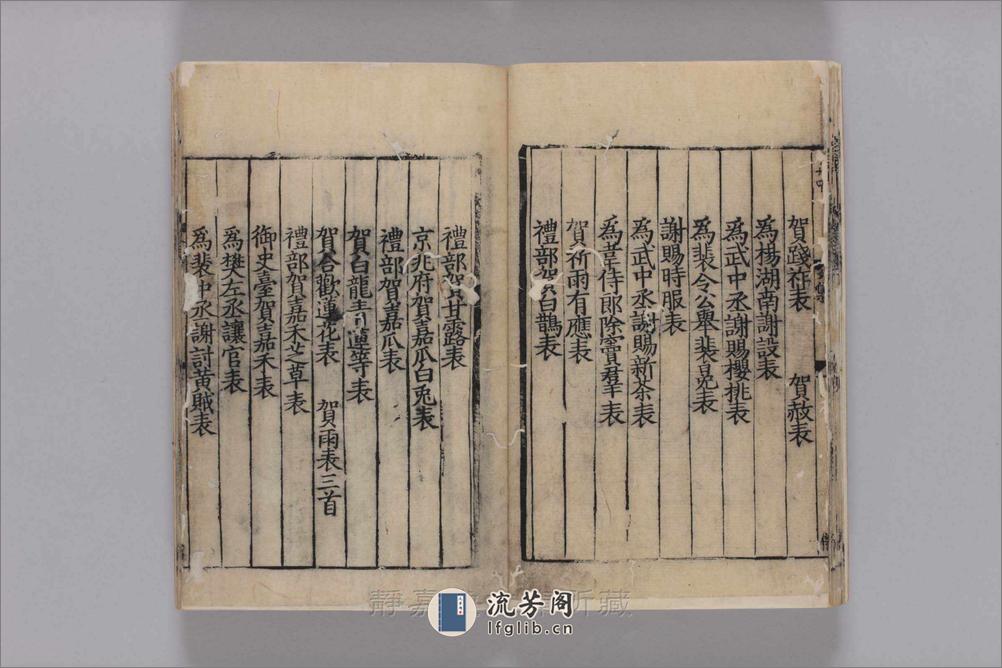 賀踐祚表　賀赦表
為楊湖南謝設表
為武中丞謝賜櫻桃表
為裴令公舉裴冕表
謝賜時服表
為武中丞謝賜新茶表
為韋侍郎除竇羣表
賀祈雨有應表
禮部賀白鵲表
禮部賀甘露表
京兆府賀嘉瓜白兎表
禮部賀嘉瓜表
賀白龍青蓮等表
賀合歡蓮花表　賀雨表三首
禮部賀嘉禾芝草表
御史臺賀嘉禾表
為樊左丞讓官表
為裴中丞謝討黃賊表
靜嘉 所藏
流芳阁
lfglib.cn